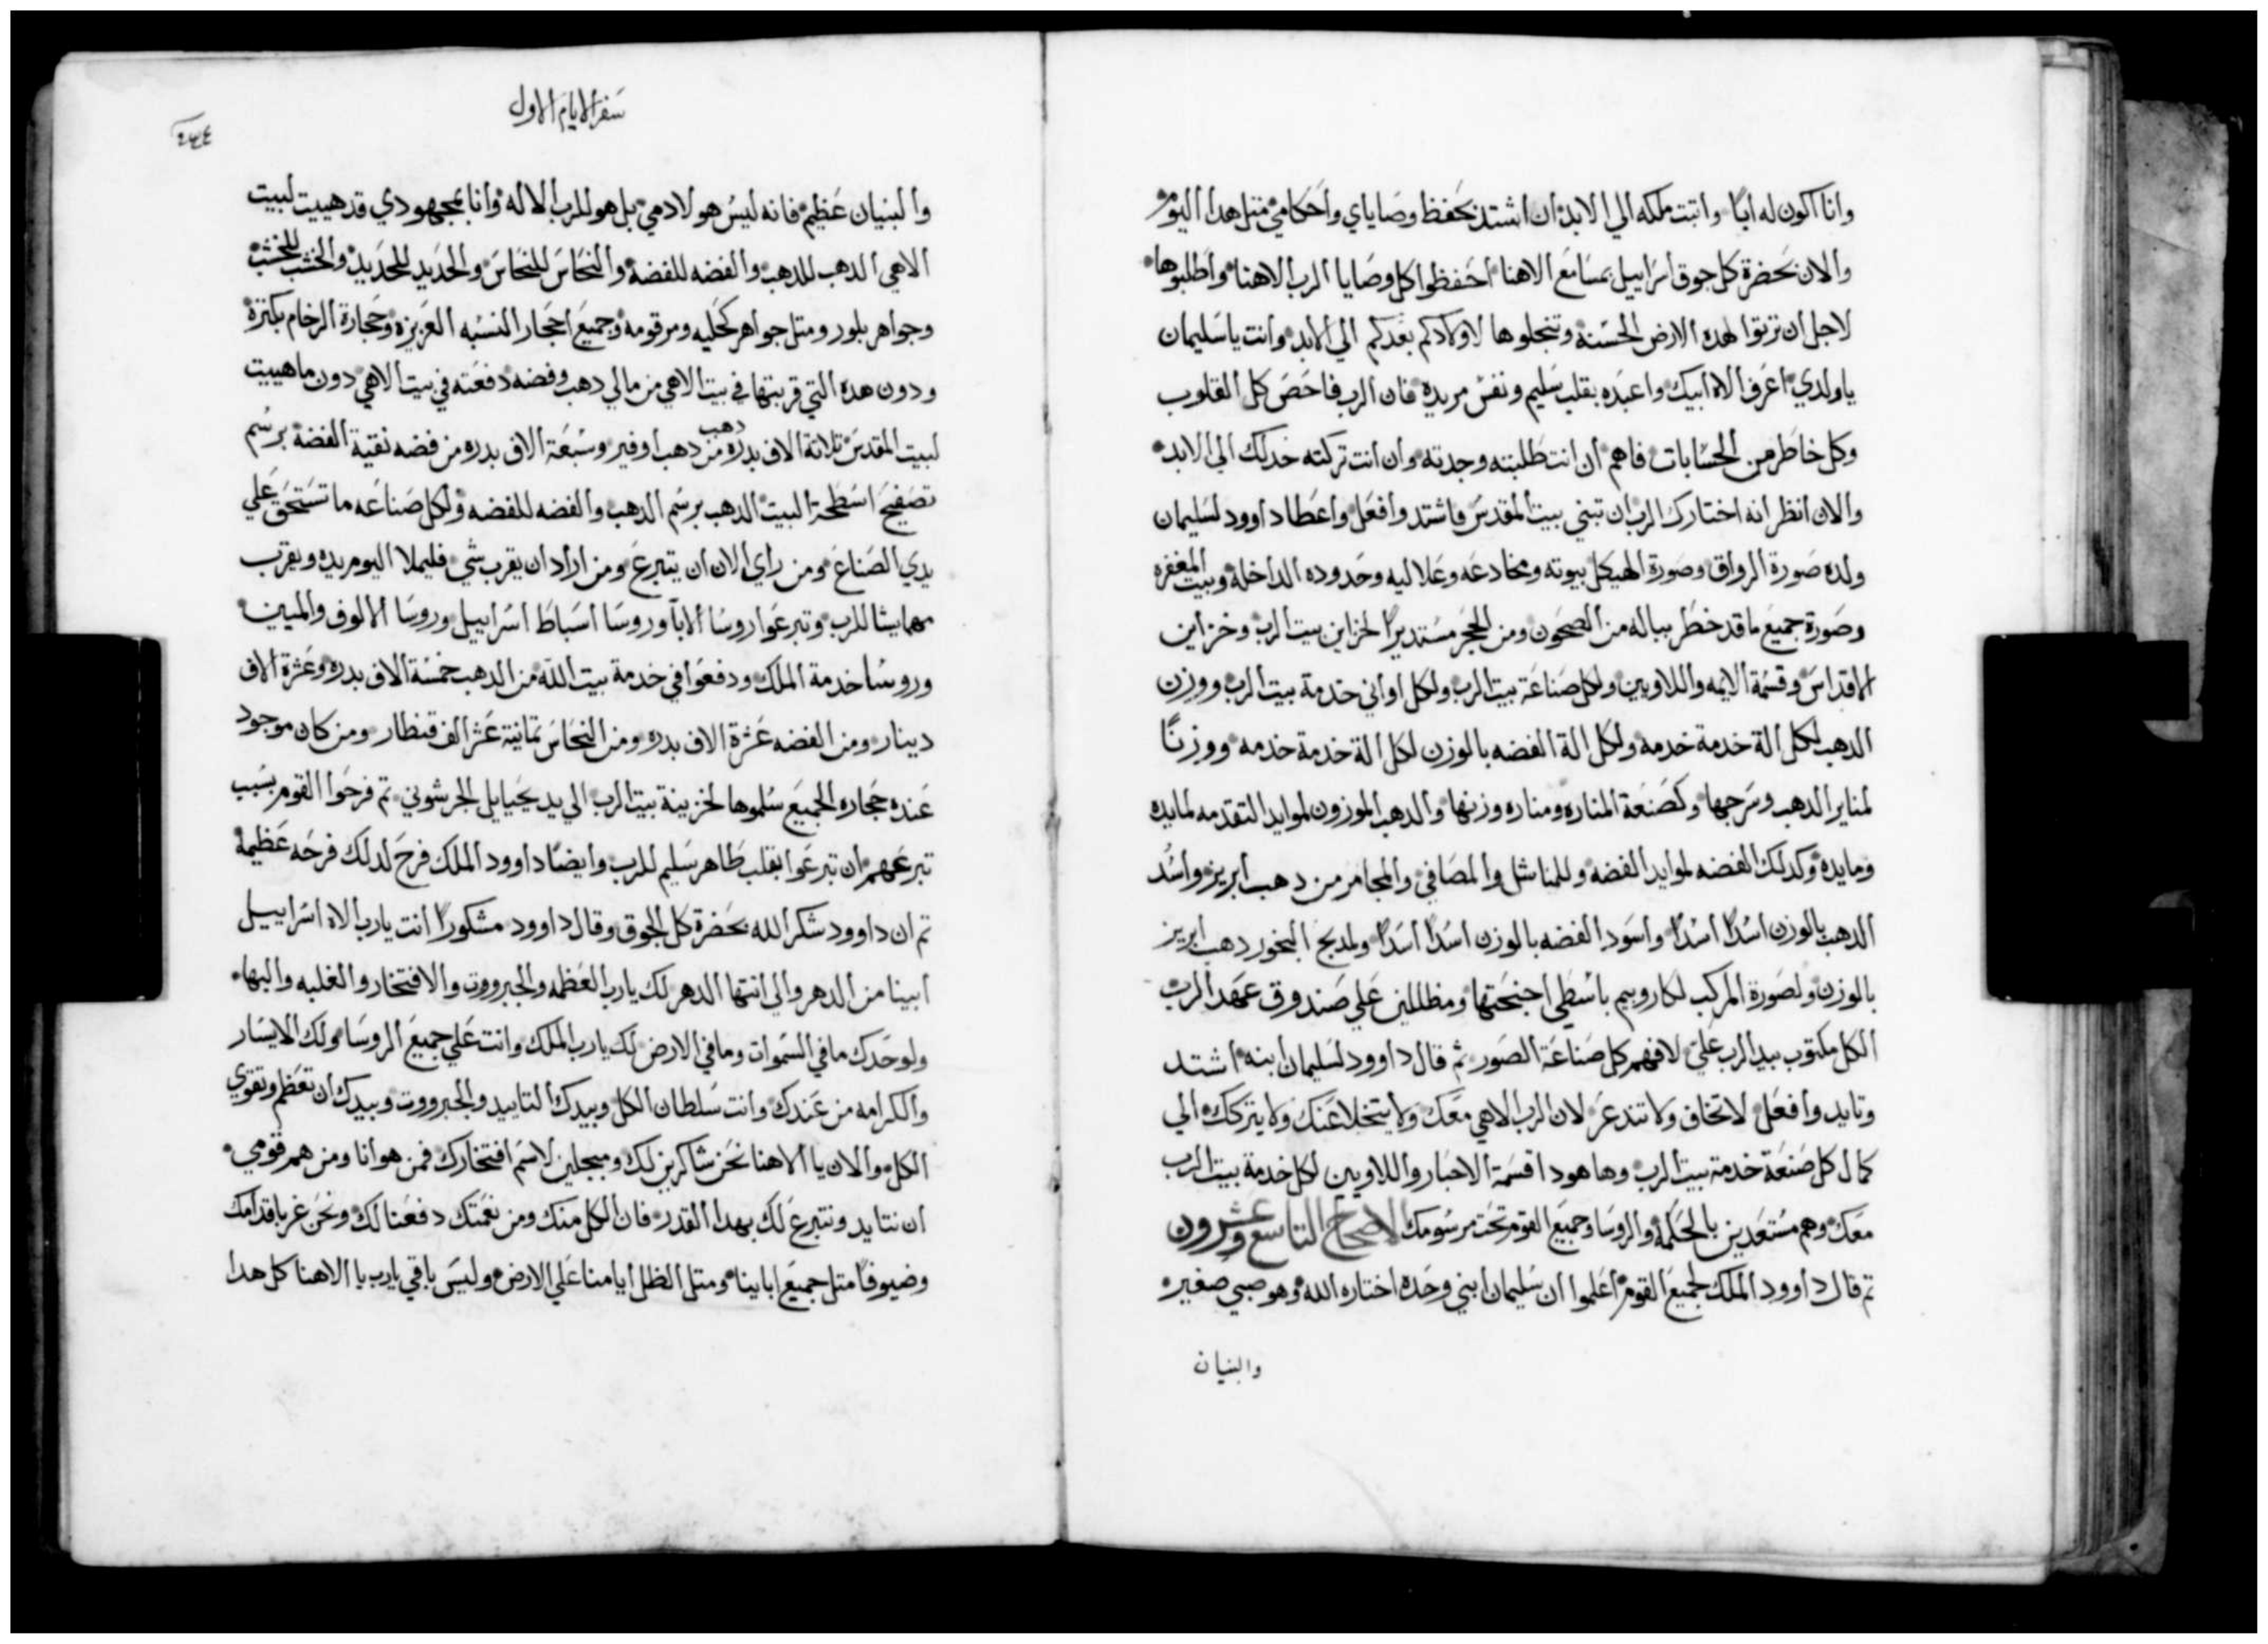 وانا اكون له ابًا واتبت ملكه الي الابد ان اشتد بحفظ وصاياي واحكامي متل هدا اليوم
والان بحضرة كل جوق اسراييل بمسامع الاهنا احفظوا كل وصايا الرب الاهنا واطلبوها
لاجل ان ترتوا لهده الارض الحسنة وتنحلوها لاولادكم بعدكم الي الابد وانت يا سليمان
يا ولدي اعرف الاه ابيك واعبده بقلب سليم ونفس مريده فان الرب فاحص كل القلوب
وكل خاطر من الحسابات فاهم ان انت طلبته وجدته وان انت تركته خدلك الي الابد
والان انظر انه اختارك الرب ان تبني بيت المقدس فاشتد وافعل واعطا داوود لسليمان
ولده صورة الرواق وصورة الهيكل بيوته ومخادعه وعلاليه وحدوده الداخله وبيت المغفره
وصورة جميع ما قد خطر بباله من الصحون ومن الحجر مستديرًا لخزاين بيت الرب وخزاين
الاقداس وقسمة الايمه واللاويين ولكل صناعة بيت الرب ولكل اواني خدمة بيت الرب ووزن
الدهب لكل الة خدمة خدمه ولكل الة الفضه بالوزن لكل الة خدمة خدمه ووزنًا
لمناير الدهب وسرجها وكصنعة المناره ومناره وزنها والدهب الموزون لموايد التقدمه لمايده
ومايده وكدلك الفضه لموايد الفضه وللمناشل والمصافي والمجامر من دهب ابريز واسد
الدهب بالوزن اسدًا اسدًا واسود الفضه بالوزن اسدًا اسدًا ولمدبح البخور دهب ابريز
بالوزن ولصورة المركب لكاروبيم باسطي اجنحتها ومظللين علي صندوق عهد الرب
الكل مكتوب بيد الرب علي لافهم كل صناعة الصور ثم قال داوود لسليمان ابنه اشتد
وتايد وافعل لا تخاف ولا تندعر لان الرب الاهي معك ولا يتخلا عنك ولا يتركك الي
كمال كل صنعة خدمة بيت الرب وها هودا قسمة الاحبار واللاويين لكل خدمة بيت الرب
معك وهم مستعدين بالحكمه والروسا وجميع القوم تحت مرسومك الاصحاح التاسع وعشرون
تم قال داوود الملك لجميع القوم اعلموا ان سليمان ابني وحده اختاره الله وهو صبي صغير
والبنيان
سفر الايام الاول
٢٣٤
والبنيان عظيم فانه ليس هو لادمي بل هو للرب الاله وانا بمجهودي قد هييت لبيت
الاهي الدهب للدهب والفضه للفضه والنحاس للنحاس والحديد للحديد والخشب للخشب
وجواهر بلور ومتل جواهر كحليه ومرقومه وجميع احجار النسبه العزيزه وحجارة الرخام بكترة
ودون هده التي قربتها في بيت الاهي من مالي دهب وفضه دفعته في بيت الاهي دون ما هييت
لبيت المقدس تلاتة الاف بدره دهب من دهب اوفير وسبعة الاف بدره من فضه نقية الفضة برسم
تصفيح اسطحة البيت الدهب برسم الدهب والفضه للفضه ولكل صناعه ما تستحق علي
يدي الصناع ومن راي الان ان يتبرع ومن اراد ان يقرب شي فليملا اليوم يده ويقرب
مهما يشا للرب وتبرعوا روسا الابا وروسا اسباط اسراييل وروسا الالوف والميين
وروسا خدمة الملك ودفعوا في خدمة بيت الله من الدهب خمسة الاف بدره وعشرة الاف
دينار ومن الفضه عشرة الاف بدره ومن النحاس تمانية عشر الف قنطار ومن كان موجود
عنده حجاره الجميع سلموها لخزينة بيت الرب الي يد يحيايل الجرشوني تم فرحوا القوم بسبب
تبرعهم ان تبرعوا بقلب طاهر سليم للرب وايضًا داوود الملك فرح لدلك فرحه عظيمه
تم ان داوود شكر الله بحضرة كل الجوق وقال داوود مشكورًا انت يا رب الاه اسراييل
ابينا من الدهر والي انتها الدهر لك يا رب العظمه والجبرووت والافتخار والغلبه والبها
ولوحدك ما في السموات وما في الارض لك يا رب الملك وانت علي جميع الروسا ولك الايسار
والكرامه من عندك وانت سلطان الكل وبيدك التاييد والجبرووت وبيدك ان تعظم وتقوي
الكل والان يا الاهنا نحن شاكرين لك ومبجلين لاسم افتخارك فمن هو انا ومن هم قومي
ان نتايد ونتبرع لك بهدا القدر فان الكل منك ومن نعمتك دفعنا لك ونحن غربا قدامك
وضيوفًا متل جميع اباينا ومتل الظل ايامنا علي الارض وليس باقي يا رب يا الاهنا كل هدا